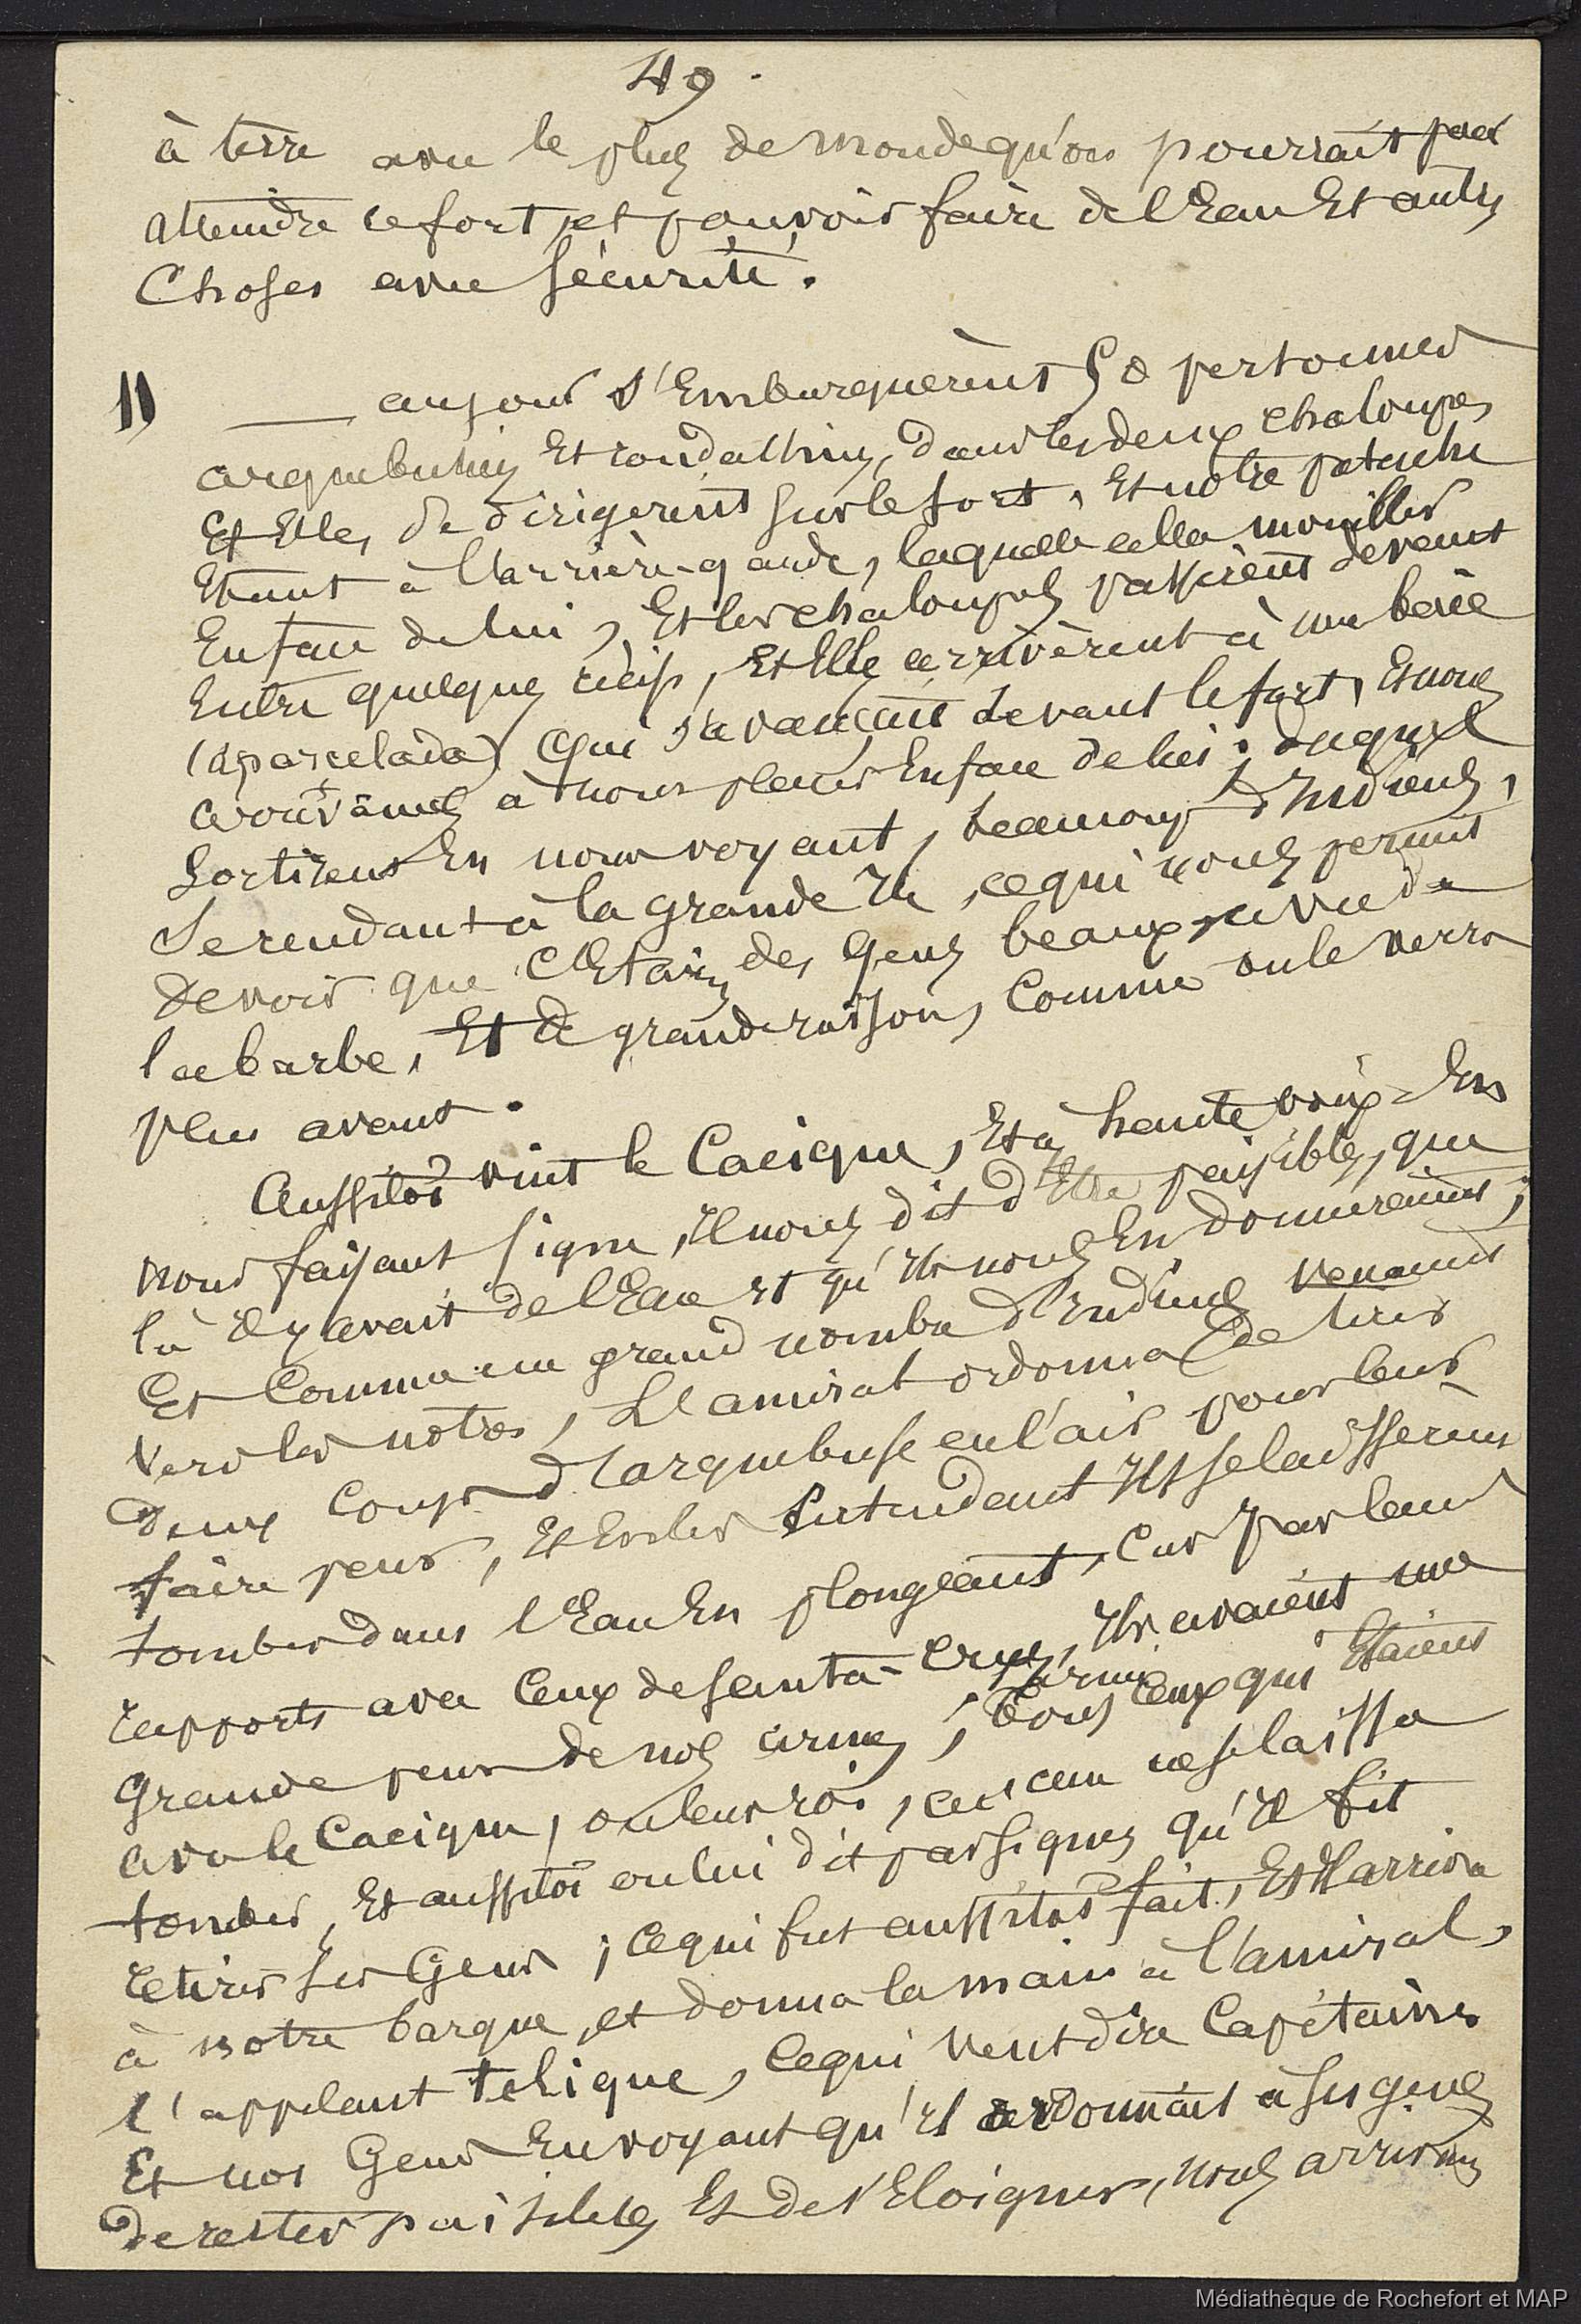 49.
à terre avec le plus de monde qu'on pourrait pour
atteindre ce fort, et pouvoir faire de l'Eau Et autres
Choses avec sécurité.
11 ___ au jour s'Embarquèrent 50 personnes
arquebusiers Et rondachiers, dans les deux chaloupes
Et Elles se dirigèrent sur le fort, Et notre patache
Etant à l'arrière-garde, laquelle alla mouiller
En face de lui, Et les chaloupes passèrent devant
Entre quelques récifs, Et Elles arrivèrent à une baie
(aparcelada) Qui s'avançait devant le fort, Et nous
arrivâmes à nous placer En face de lui; duquel
Sortirent En nous voyant, beaucoup d'Indiens,
Se rendant à la grande Ile, ce qui nous permit
De voir que C'Etaient des Gens beaux, ayant de
la barbe, Et de grande raison, Comme on le verra
plus avant.
Aussitôt vint le Cacique, Et à haute voix En
nous faisant signe, Il nous dit d'Etre paisibles, que
là Il y avait de l'Eau et qu'Ils nous En donneraient;
Et Comme un grand nombre d'Indiens venaient
Vers les notres, L'amiral ordonna de tirer
Deux Coups D'arquebuse en l'air pour leur
faire peur, Et En les Entendant Ils se laissèrent
tomber dans l'Eau En plongeant, Car par leurs
rapports avec Ceux de Santa-Cruz, Ils avaient une
Grande peur de nos armes; parmi Tous Ceux qui Etaient
avec le Cacique, ou leur roi, aucun ne se laissa
tomber, Et aussitôt on lui dit par signes qu'Il fit
retirer ses Gens; ce qui fut aussitôt fait, Et Il arriva
à notre barque, et donna la main à l'amiral,
l'appelant teliqué, Ce qui Veut dire Capitaine
Et nos Gens En voyant qu'Il ordonnait à ses gens
De rester paisibles Et de s'Eloigner, nous arrivames
Médiathèque de Rochefort et MAP